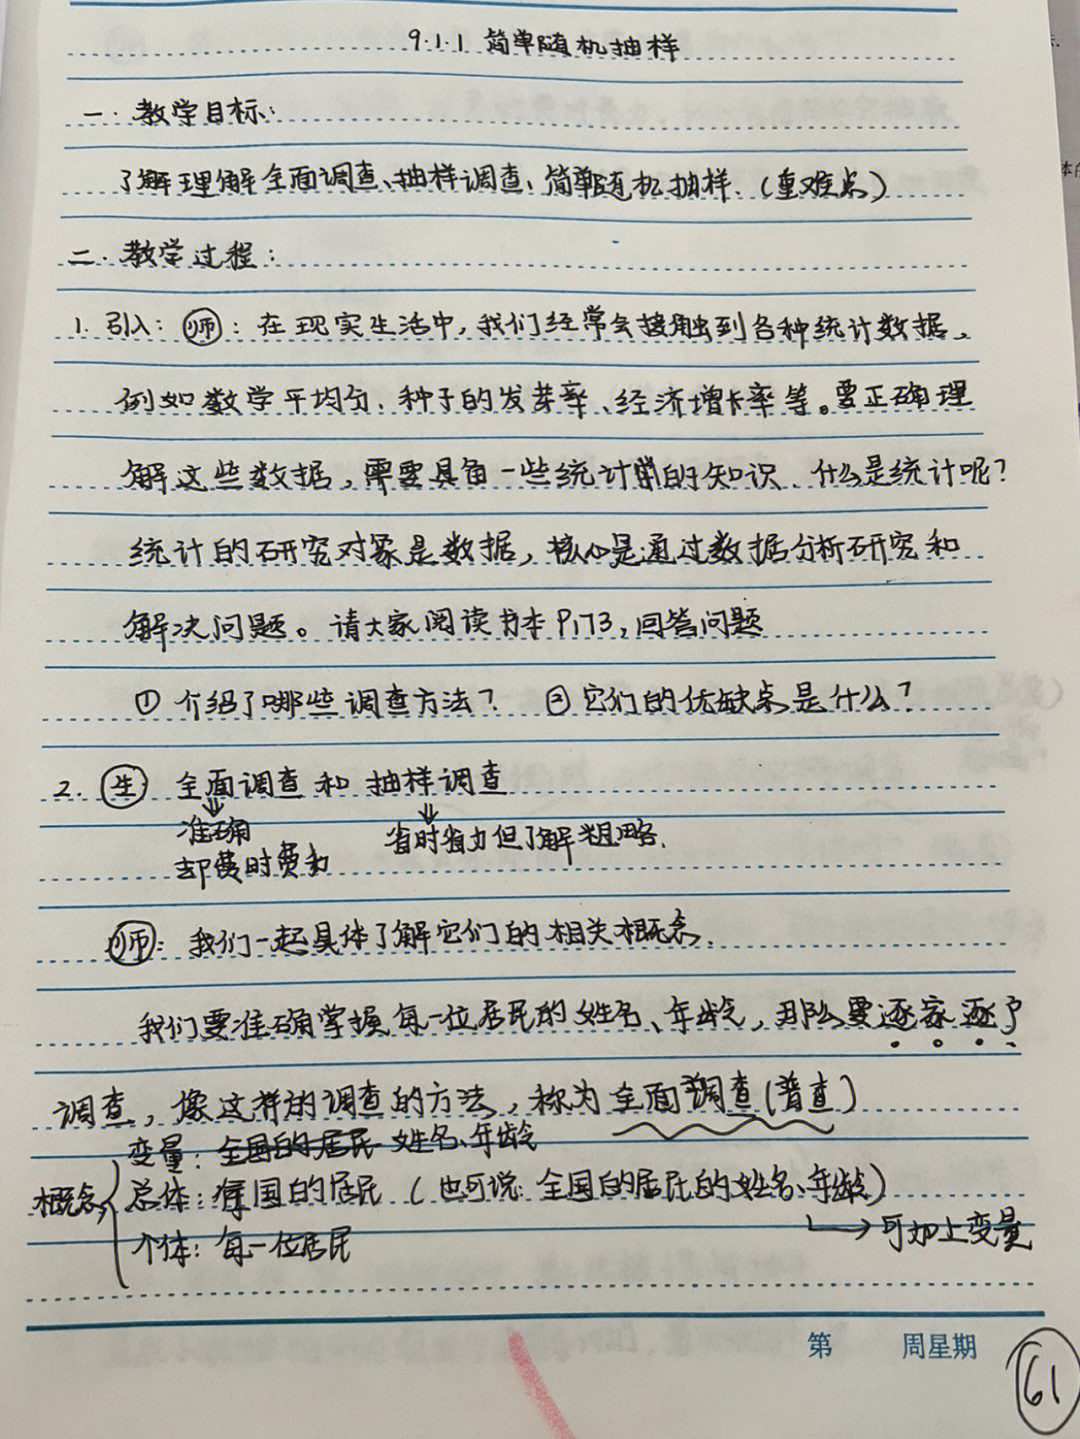 9.1.1 简单随机抽样
一.教学目标:
了解理解全面调查、抽样调查、简单随机抽样.(重难点)
二.教学过程:
1. 引入:师:在现实生活中,我们经常会接触到各种统计数据,
例如数学平均分、种子的发芽率、经济增长率等。要正确理
解这些数据,需要具备一些统计学的知识、什么是统计呢?
统计的研究对象是数据,核心是通过数据分析研究和
解决问题。请大家阅读书本P173,回答问题
①介绍了哪些调查方法? ②它们的优缺点是什么?
2. 生 全面调查和 抽样调查
⇓ ⇓
准确 省时省力但了解粗略.
却费时费力
师:我们一起具体了解它们的相关概念.
我们要准确掌握每一位居民的姓名、年龄,那么要逐家逐户
调查,像这样的调查的方法,称为全面调查(普查)
变量:全国的居民 姓名、年龄
概念 总体:全国的居民(也可说:全国的居民的姓名、年龄)
→可加上变量
个体:每一位居民
第 周星期
61